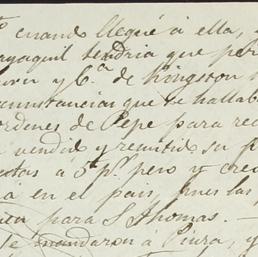 cuando llegué á ella, y
ayaquil tendria que per
y C.ª de Kingston
cunstancias que se hallab
ordenes de Pepe para rec
vendid y remitid su p
pero y creo
á en el pais, pues las
para S. Thomas. —
le mandaron á Piura, y